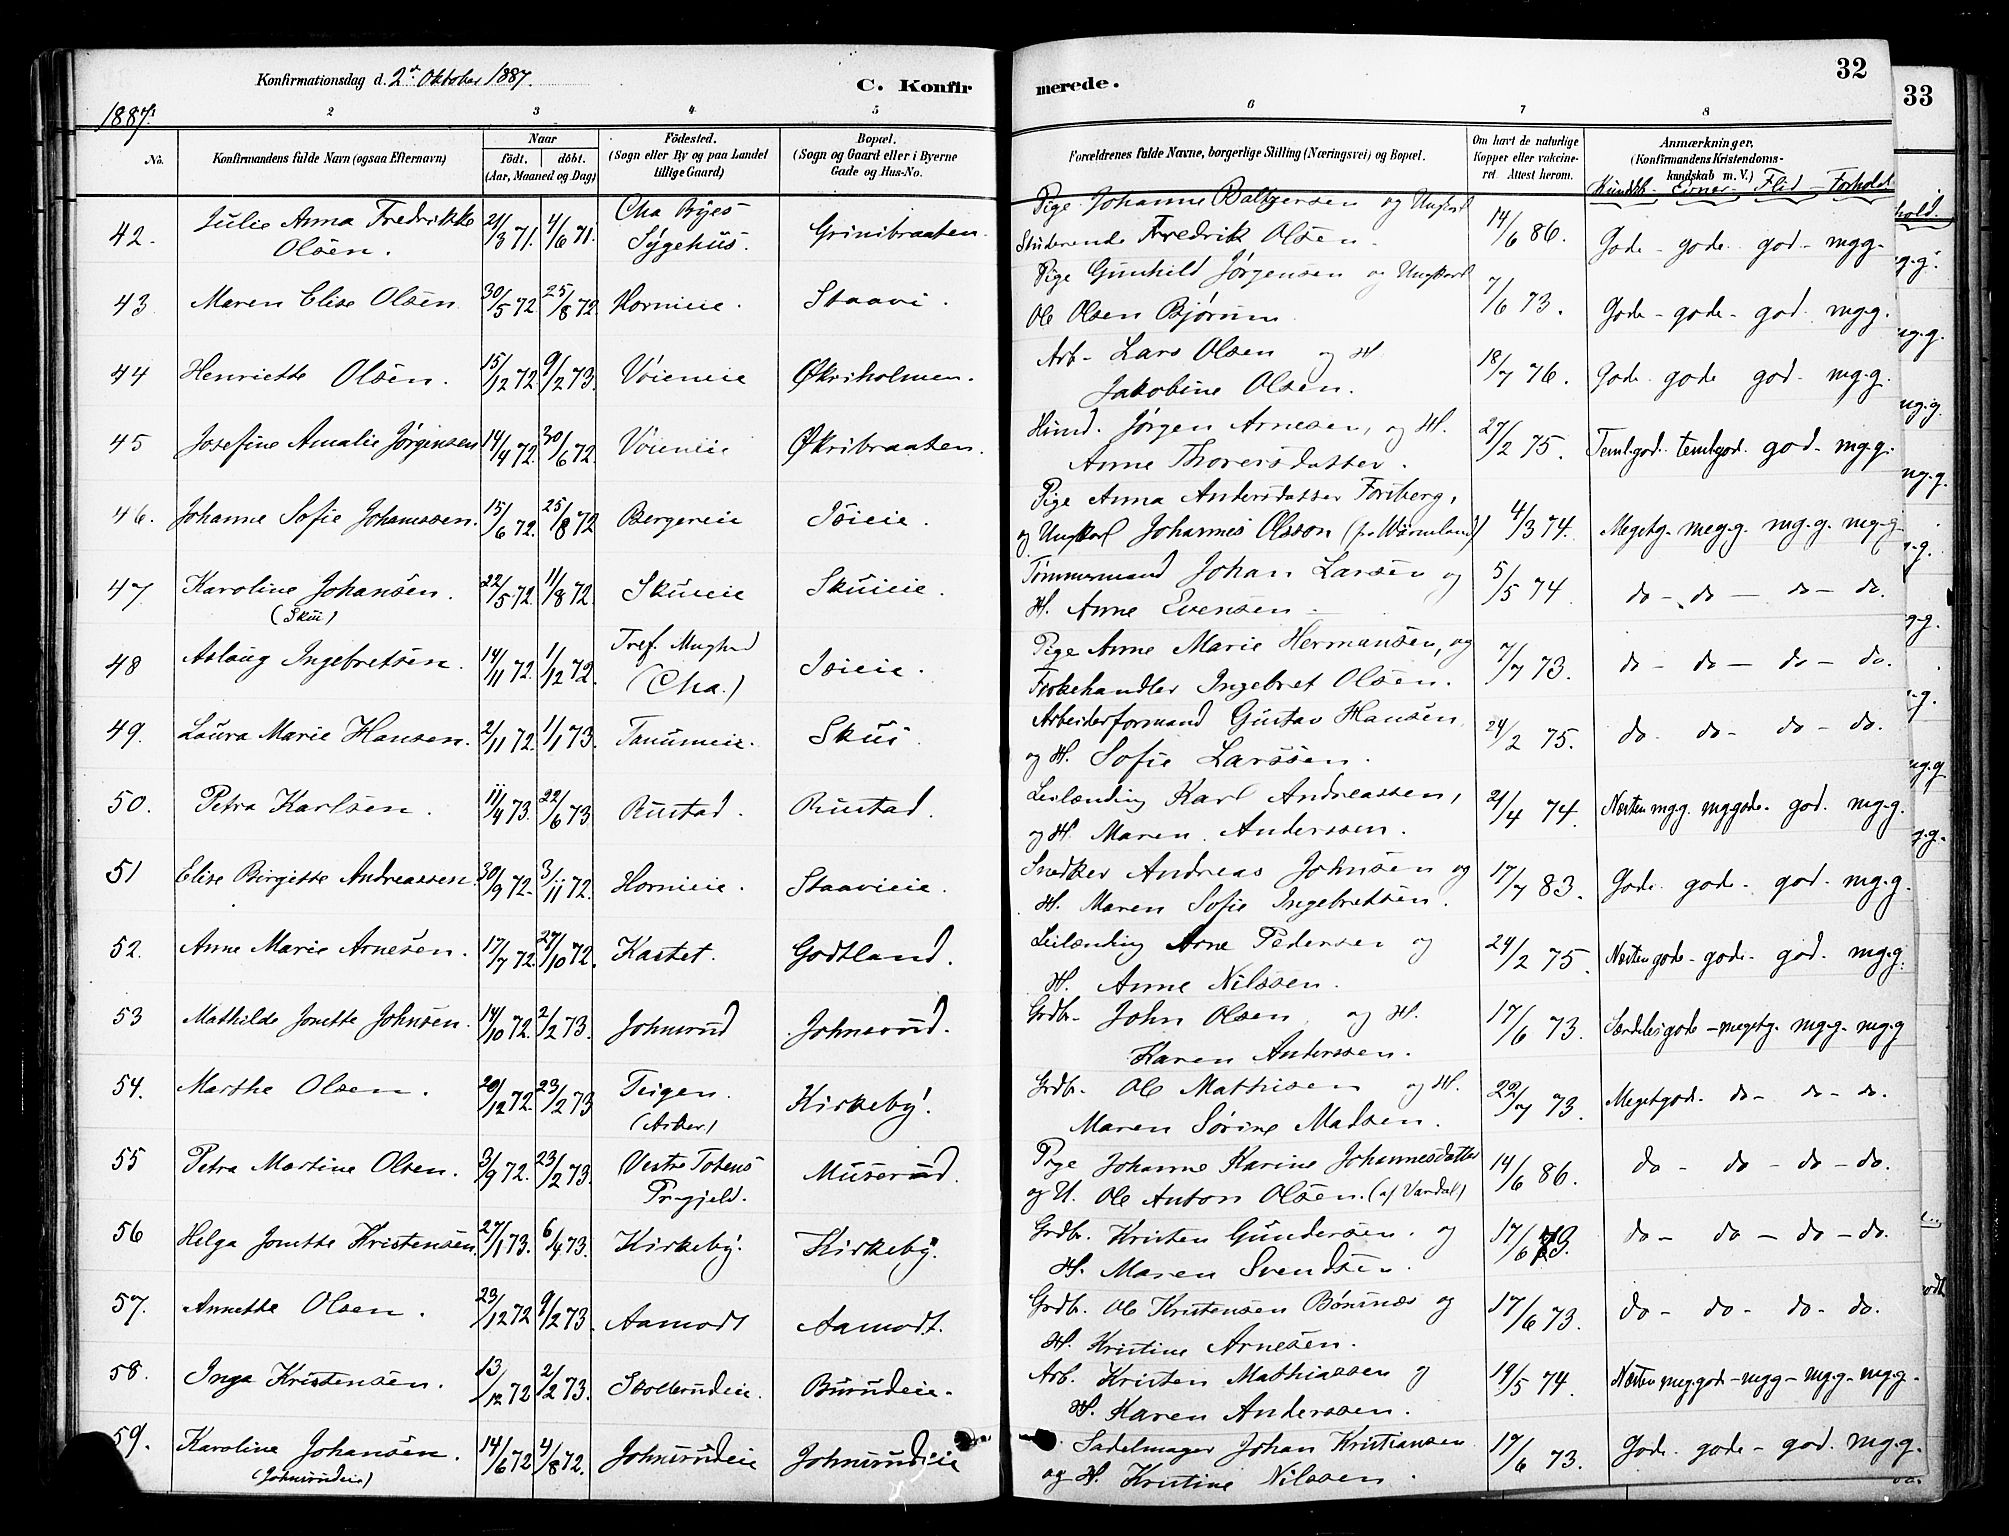 Konfirmationsdag d. 2den Oktober 1887.
C. Konfirmerede.
32
33
1887.
2 3 4 5 6 7 8
No.
Konfirmandens fulde Navn (ogsaa Efternavn)
Naar
födt. döbt.
(Aar, Maaned og Dag)
Födested.
(Sogn eller By og paa Landet
tillige Gaard)
Bopæl.
(Sogn og Gaard eller i Byerne
Gade og Hus-No.
Forældrenes fulde Navne, borgerlige Stilling (Næringsvei) og Bopæl.
Om havt de naturlige
Kopper eller vakcine-
ret. Attest herom.
Anmærkninger.
(Konfirmandens Kristendoms-
kundskab m. V.)
Flid - Forhold
42. Julie Anna Fredrikke 21/3 71. 4/6 71. Cha Byes Grinibraaten. Pige Johanne Baltzersen og Ungkarl 14/6 86. Gode - gode. god - mgg.
Olsen. Sygehus. Studerende Fredrik Olsen.
43 Maren Elise Olsen 30/5 72 25/8 72 Hornieie. Staavi. Pige Gunhild Jørgensen og Ungkarl 7/6 73. Gode - gode - god. mg.g.
Ole Olsen Bjørum
44 Henriette Olsen. 15/12 72 9/2 73. Vöieneie Økriholmen. Arb. Lars Olsen og H. 18/7 76. Gode. gode god. mg.g.
Jakobine Olsen.
45 Josefine Amalie Jørgensen 14/4 72. 30/6 72. Vöieneie Økribraaten. Husmd. Jørgen Arnesen, og H. 27/2 75. Teml.god. teml.god. god - mg.g.
Anne Thoresdatter.
46. Johanne Sofie Johannesen. 15/6 72. 25/8 72 Bergereie Isieie. Pige Anna Andersdatter Forsberg, 4/3 74. Megetg. meg.g. mg.g. mg.g.
og Ungkarl Johannes Olsson (fr. Wärmeland)
47 Karoline Johansen. 22/5 72 11/8 72. Skuieie Skuieie. Tømmermand Johan Larsen og 5/5 74 do - do - do - do.
(Skui) H. Anne Evensen.
48 Aslaug Ingebretsen. 14/11 72. 1/12 72. Tref. Mughed Isieie. Pige Anne Marie Hermansen, og 7/7 73. do - do - do - do.
(Cha.) Fiskehandler Ingebret Olsen.
49. Laura Marie Hansen. 2/11 72. 1/1 73. Tanumeie. Skui Arbeiderformand Gustav Hansen 24/2 75. do. do - do - do.
og H. Sofie Larssen.
50. Petra Karlsen. 11/4 73. 22/6 73 Rustad. Rustad. Leilænding Karl Andreassen, 21/4 74. Næsten mg.g. mg gode. god. mg.g.
og H. Maren Anderssen.
51 Elise Birgitte Andreassen. 30/9 72. 3/11 72. Hornieie. Staavieie. Snedker Andreas Johnsen og 17/7 83. Gode. gode - god. mg.g.
H. Maren Sofie Ingebretsen.
52. Anne Marie Arnesen. 17/7 72. 27/10 72. Kastet. Godtland. Leilænding Arne Pedersen og 24/2 75. Næsten gode - gode - god. mg.g.
H. Anne Nilssen.
53 Mathilde Jonette Johnsen. 14/10 72. 2/2 73. Johnsrud Johnsrud. Grdb. John Olsen og H. 17/6 73. Særdeles gode - megetg. mg.g. mg.g
Karen Anderssen.
54. Marthe Olsen. 20/12 72. 23/2 73 Teigen. Kirkeby. Grdb. Ole Mathisen og H. 22/7 73. Megetgod. do - do - do.
(Asker) Maren Sørine Madsen.
55 Petra Martine Olsen. 3/9 72. 23/2 73. Vestre Totens Muserud. Pige Johanne Karine Johannesdatter 14/6 86. do - do - do - do.
Prgjeld. og U. Ole Anton Olsen. (af Vardal)
56 Helga Jonette Kristensen. 27/1 73. 6/4 73. Kirkeby. Kirkeby. Grdb. Kristen Gundersen. og 17/6 73. do - do - do - do.
H. Maren Svendsen.
57. Annette Olsen. 23/12 72 9/2 73. Aamodt Aamodt. Grdb. Ole Kristensen Bönsnæs og 17/6 73. do - do - do - do.
H. Kristine Arnesen.
58. Inga Kristensen. 13/12 72 2/2 73. Skollerudeie. Burudeie. Arb. Kristen Mathiassen og 19/5 74. Næsten meg.god - mgg - mg.g - mg.g.
H. Karen Anderssen.
59. Karoline Johansen. 14/6 72 4/8 72. Johnsrudeie Johnsrudeie Sadelmager Johan Kristiansen 17/6 73. Gode. gode - god. mg.g.
(Johnsrudeie) og H. Kristine Nilssen.